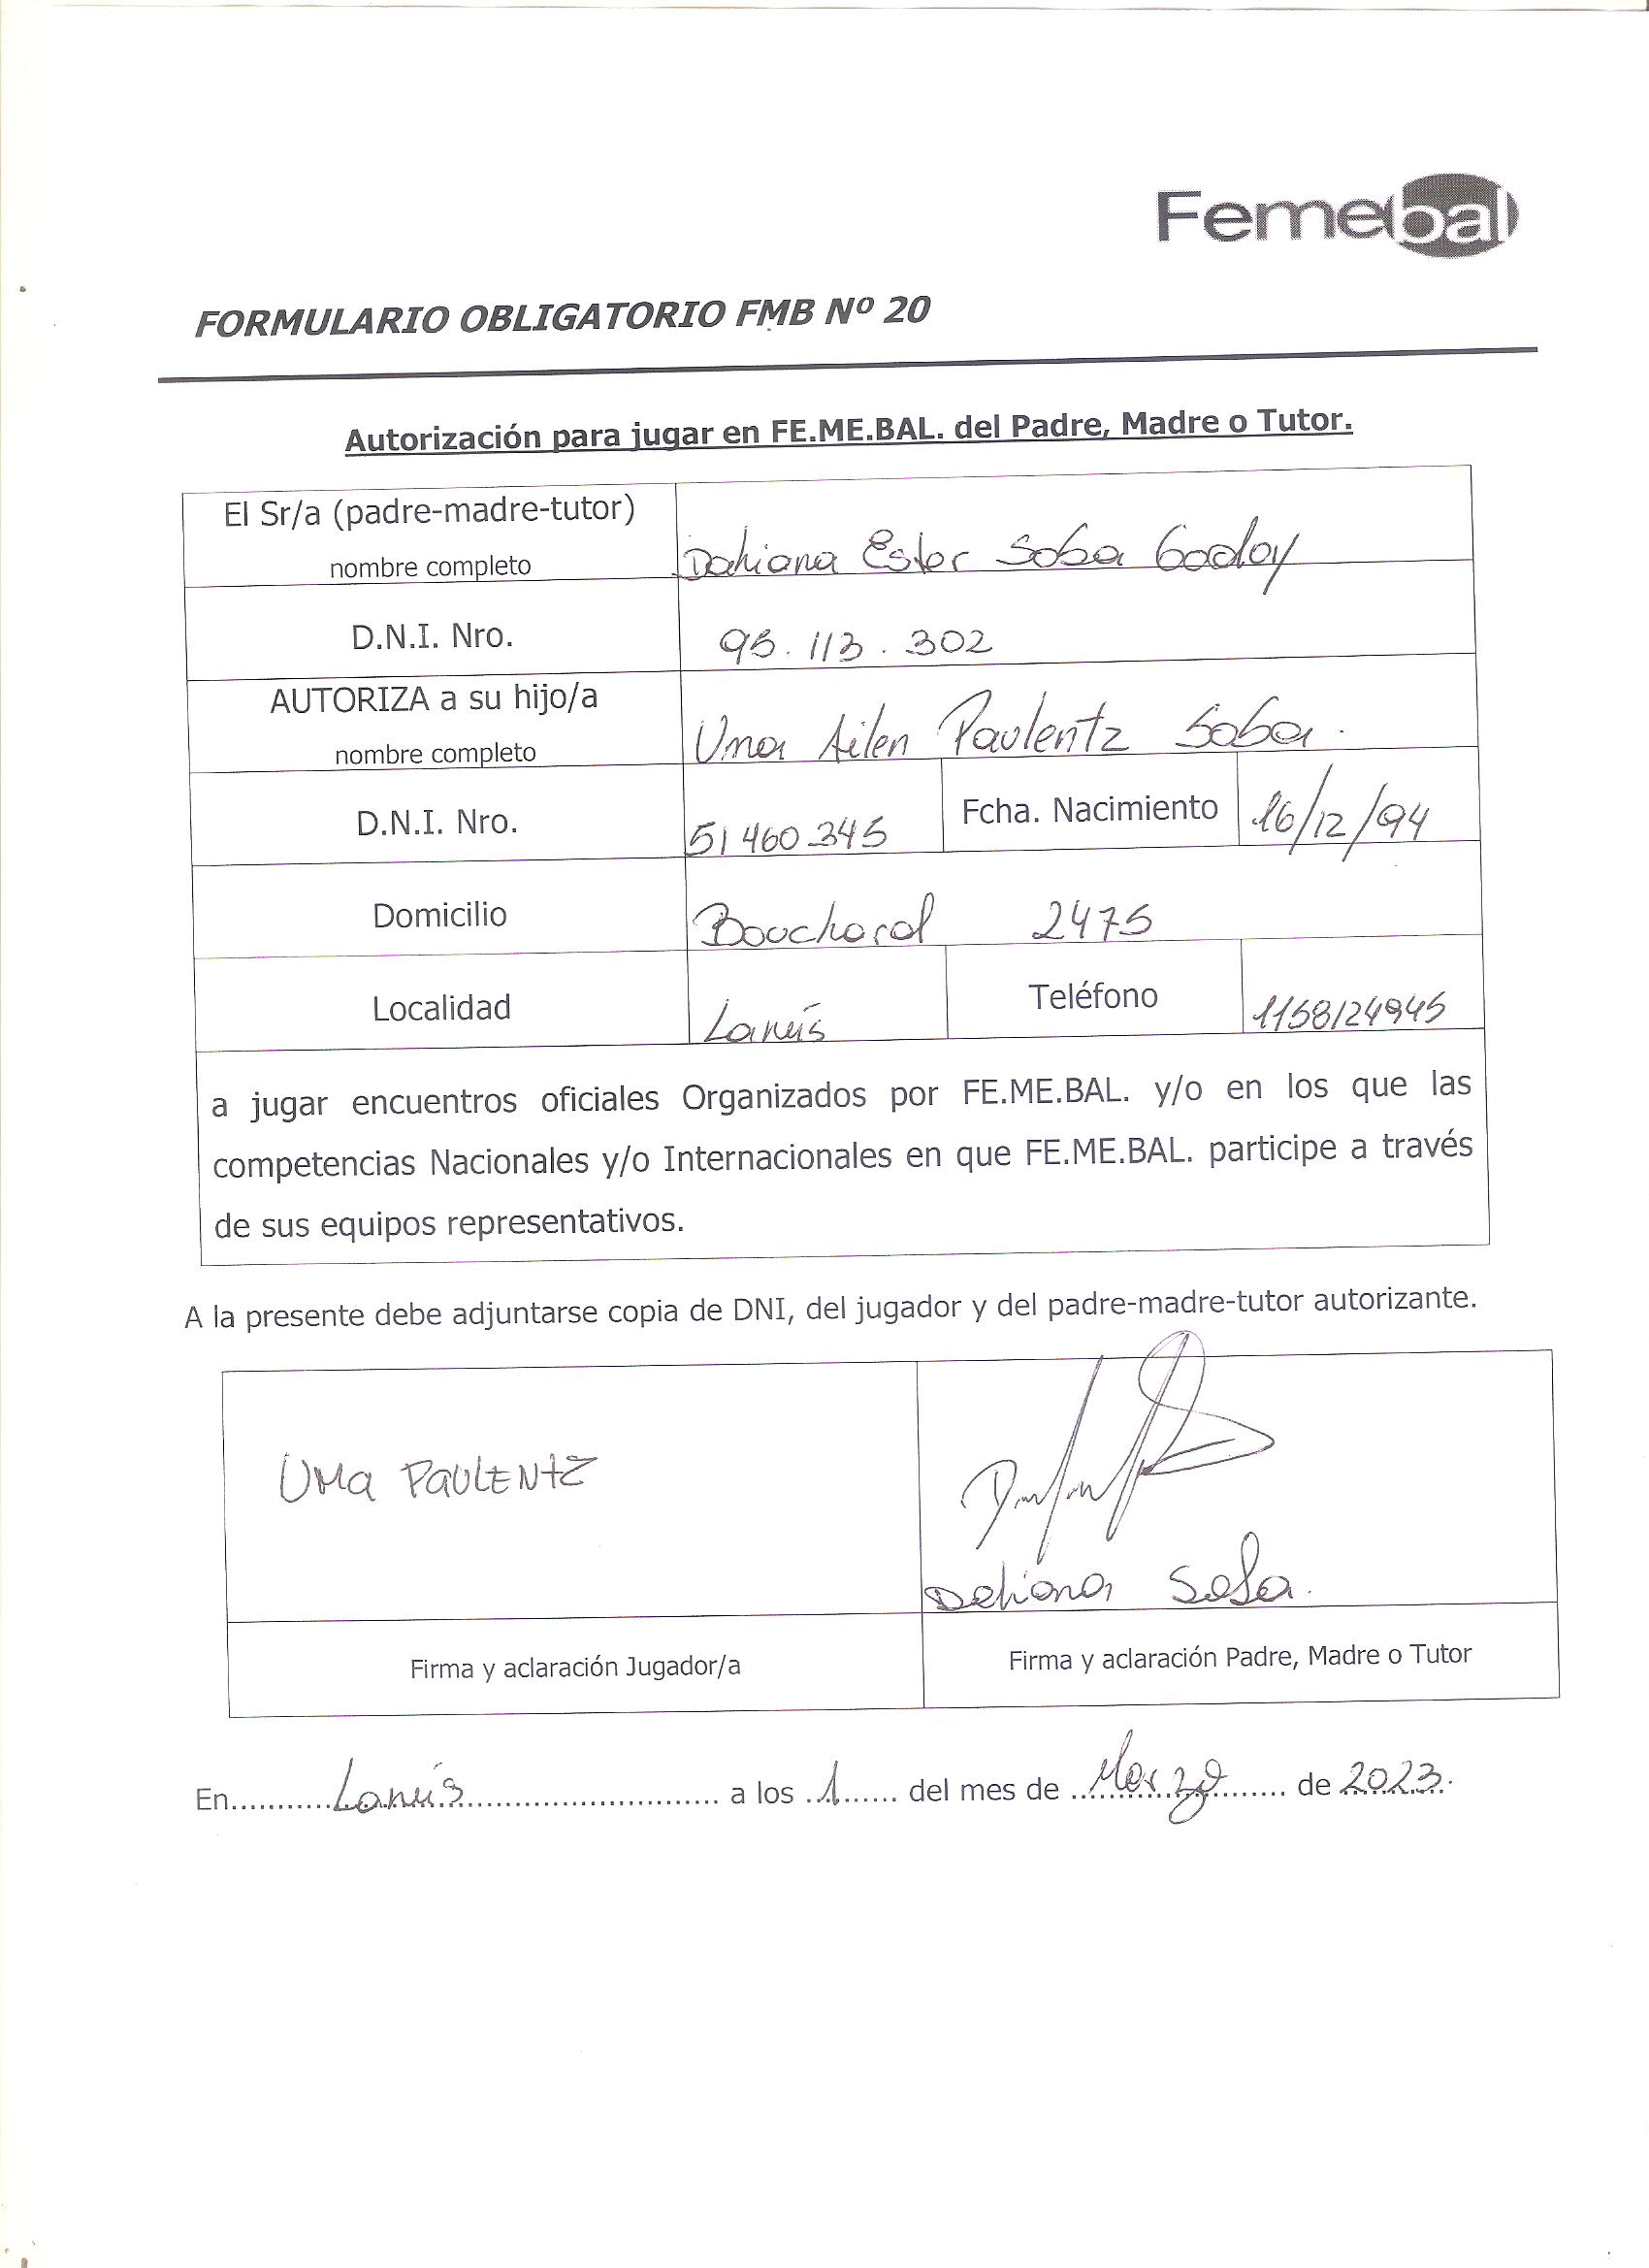 Femebal
FORMULARIO OBLIGATORIO FMB Nº 20
Autorización para jugar en FE.ME.BAL. del Padre, Madre o Tutor.
El Sr/a (padre-madre-tutor)
nombre completo
Dahiana Ester Sosa Godoy
D.N.I. Nro.
95.113.302
AUTORIZA a su hijo/a
nombre completo
Uma Ailen Paulentz Sosa.
D.N.I. Nro.
51 460 345
Fcha. Nacimiento
16/12/94
Domicilio
Bouchard 2475
Localidad
Lanús
Teléfono
1158124945
a jugar encuentros oficiales Organizados por FE.ME.BAL. y/o en los que las
competencias Nacionales y/o Internacionales en que FE.ME.BAL. participe a través
de sus equipos representativos.
A la presente debe adjuntarse copia de DNI, del jugador y del padre-madre-tutor autorizante.
UMa PaULENtZ
Dahiana Sosa.
Firma y aclaración Jugador/a
Firma y aclaración Padre, Madre o Tutor
En...........Lanús............................. a los .1...... del mes de ...Marzo....... de 2023.